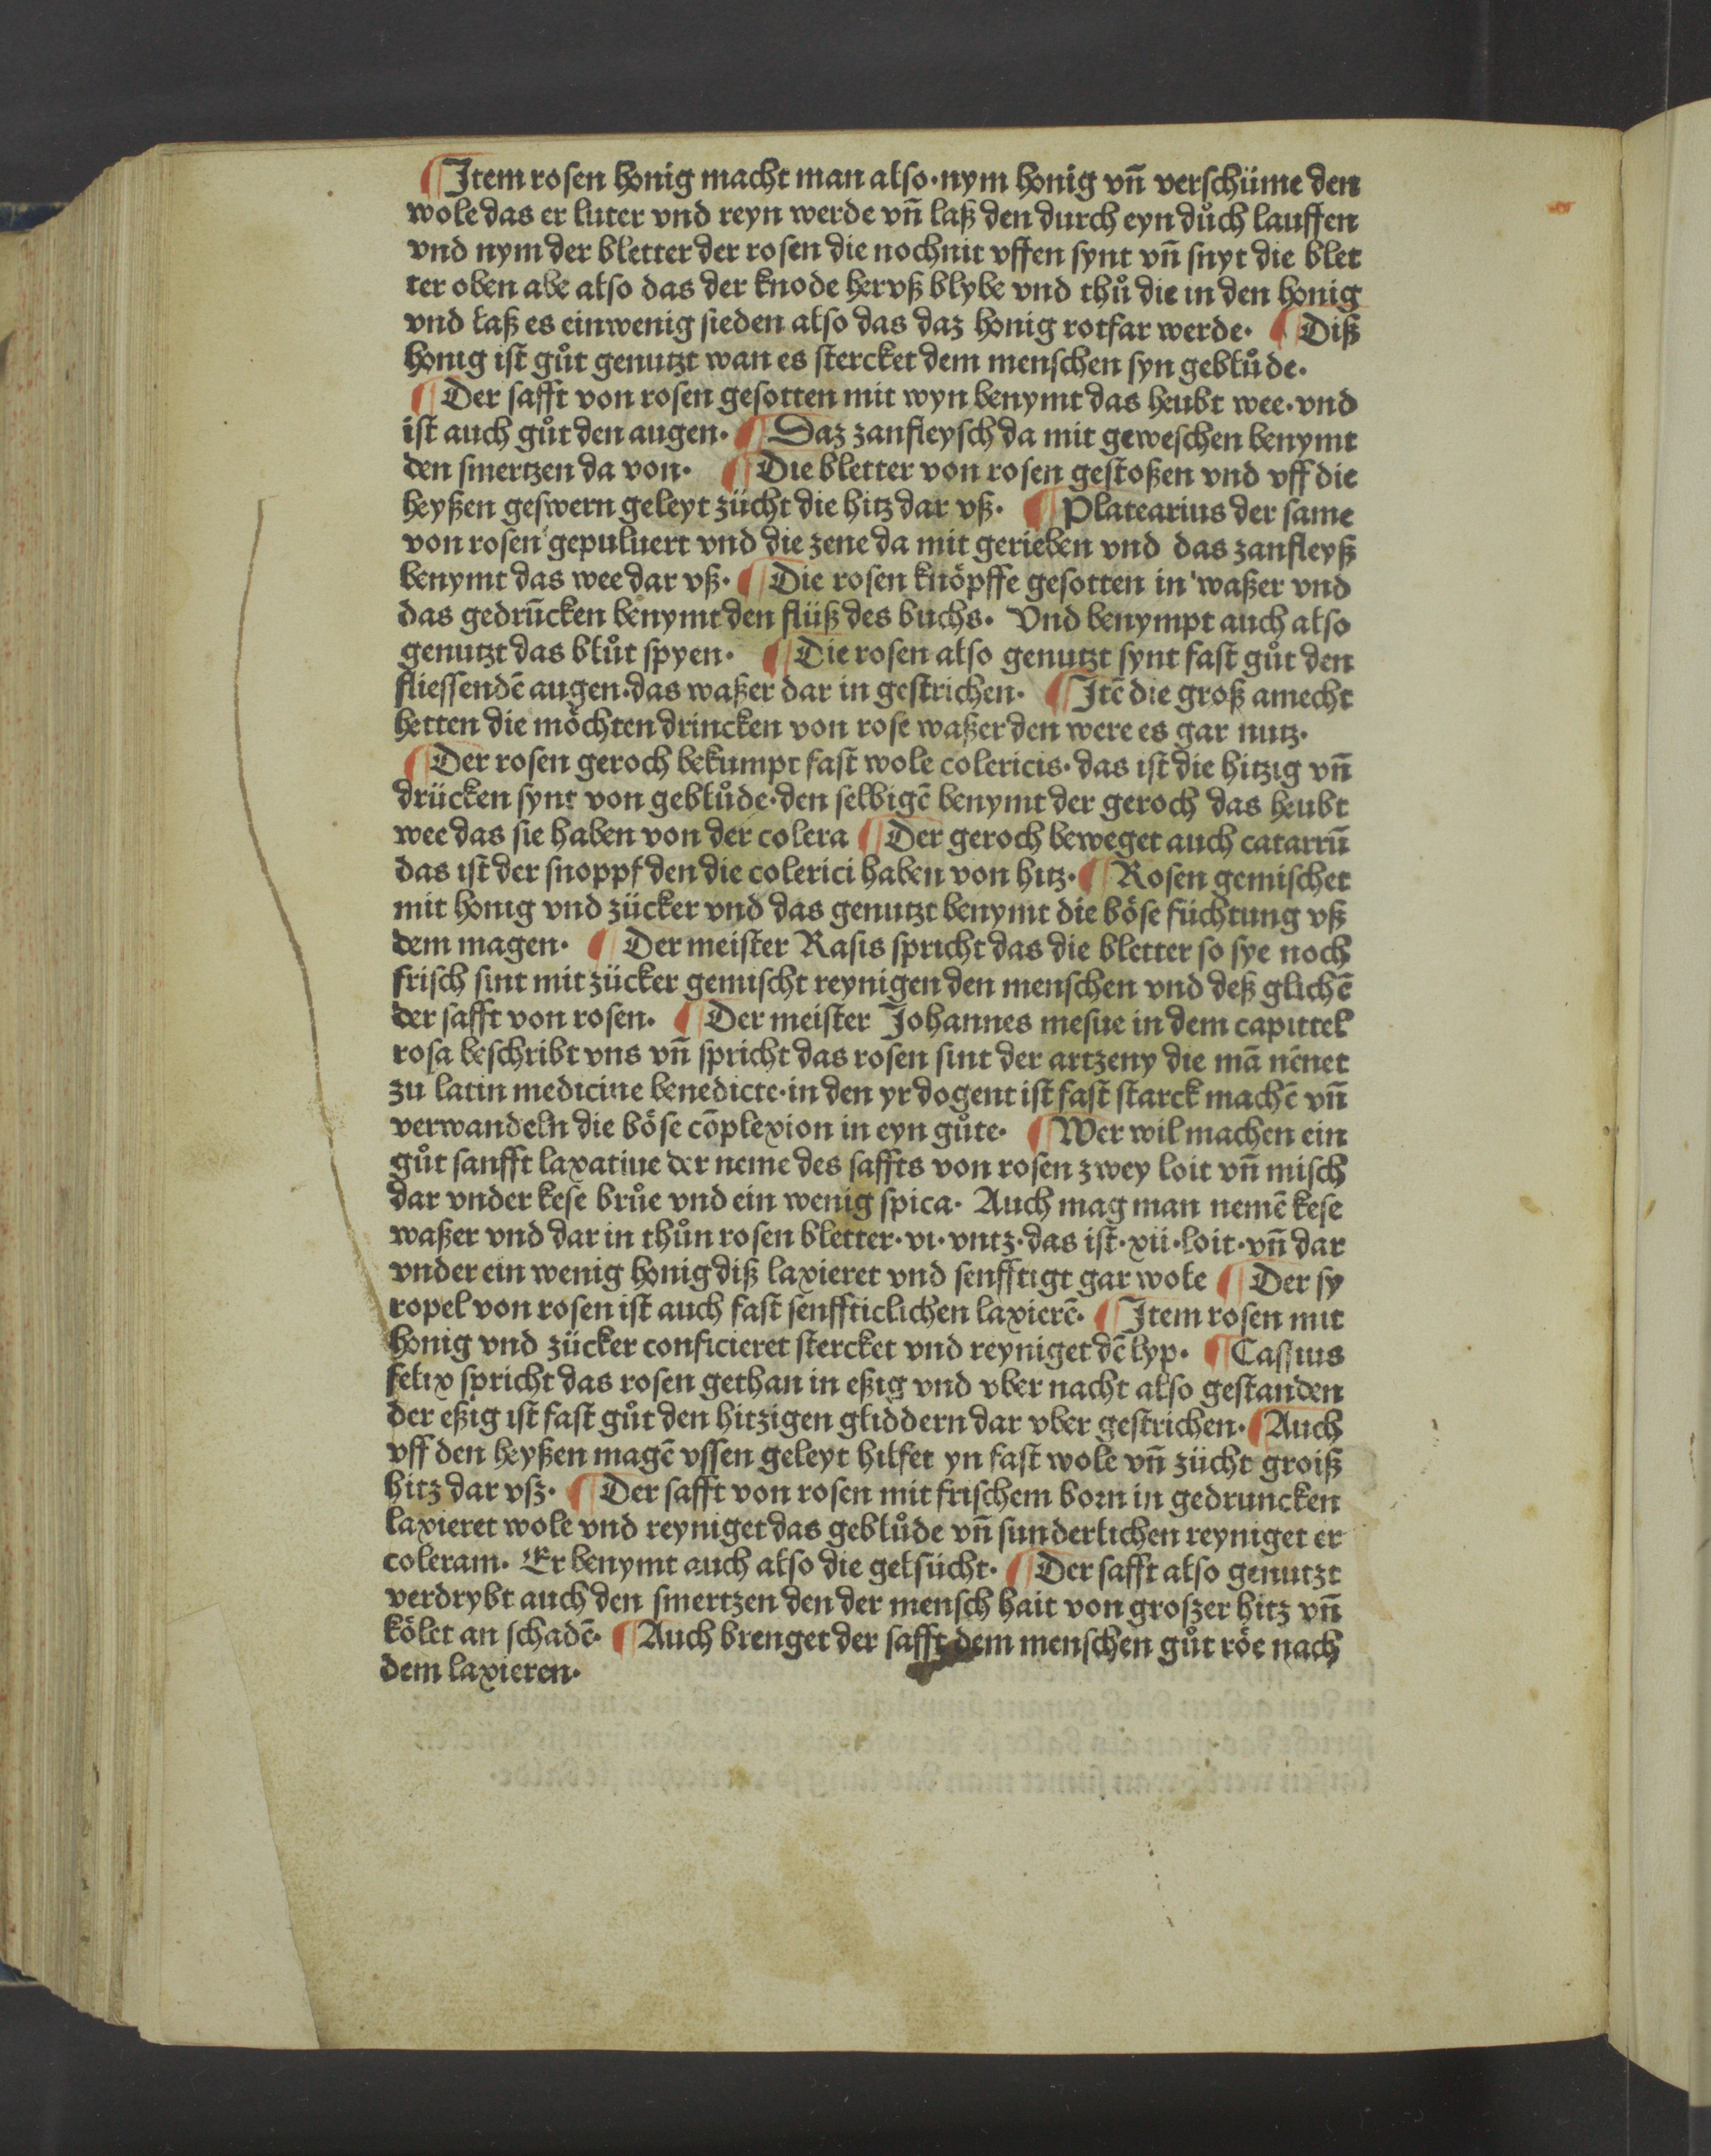 ¶ Item rosen honig macht man also·nym honig vn̄ verschüme den
wole das er luter vnd reyn werde vn̄ laß den durch eyn důch lauffen
vnd nym der bletter der rosen die nochnit vffen synt vn̄ snyt die blet
ter oben abe also das der knode hervß blybe vnd thů die in den honig
vnd laß es einwenig sieden also das daz honig rotfar werde· ¶ Diß
honig ist gůt genutzt wan es stercket dem menschen syn geblůde·
¶ Der safft von rosen gesotten mit wyn benymt das heubt wee·vnd
ist auch gůt den augen· ¶ Daz zanfleysch da mit geweschen benymt
den smertzen da von· ¶ Die bletter von rosen gestoßen vnd vff die
heyßen geswern geleyt zücht die hitz dar vß· ¶ Platearius der same
von rosen gepuluert vnd die zene da mit gerieben vnd das zanfleyß
benymt das wee dar vß· ¶ Die rosen knöpffe gesotten in waßer vnd
das gedrūcken benymt den flüß des buchs· Vnd benympt auch also
genutzt das blůt spyen· ¶ Die rosen also genutzt synt fast gůt den
fliessendē augen·das waßer dar in gestrichen· ¶ Itē die groß amecht
hetten die möchten drincken von rose waßer den were es gar nutz·
¶ Der rosen geroch bekumpt fast wole colericis·das ist die hitzig vn̄
drücken synt von geblůde·den selbigē benymt der geroch das heubt
wee das sie haben von der colera ¶ Der geroch beweget auch catarrū
das ist der snoppf den die colerici haben von hitz· ¶ Rosen gemischet
mit honig vnd zücker vnd das genutzt benymt die böse füchtung vß
dem magen· ¶ Der meister Rasis spricht das die bletter so sye noch
frisch sint mit zücker gemischt reynigen den menschen vnd deß glichē
der safft von rosen· ¶ Der meister Johannes mesue in dem capittel
rosa beschribt vns vn̄ spricht das rosen sint der artzeny die mā nēnet
zu latin medicine benedicte·in den yr dogent ist fast starck machē vn̄
verwandeln die böse cōplexion in eyn gůte· ¶ Wer wil machen ein
gůt sanfft laxatiue der neme des saffts von rosen zwey loit vn̄ misch
dar vnder kese brůe vnd ein wenig spica· Auch mag man nemē kese
waßer vnd dar in thůn rosen bletter·vi·vntz·das ist·xii·loit·vn̄ dar
vnder ein wenig honig diß laxieret vnd senfftigt gar wole ¶ Der sy
ropel von rosen ist auch fast senffticlichen laxierē· ¶ Item rosen mit
honig vnd zücker conficieret stercket vnd reyniget dē lyp· ¶ Cassius
felix spricht das rosen gethan in eßig vnd vber nacht also gestanden
der eßig ist fast gůt den hitzigen gliddern dar vber gestrichen· ¶ Auch
vff den heyßen magē vssen geleyt hilfet yn fast wole vn̄ zücht groiß
hitz dar vß· ¶ Der safft von rosen mit frischem born in gedruncken
laxieret wole vnd reyniget das geblůde vn̄ sunderlichen reyniget er
coleram· Er benymt auch also die gelsücht· ¶ Der safft also genutzt
verdrybt auch den smertzen den der mensch hait von großer hitz vn̄
kölet an schadē· ¶ Auch brenget der safft dem menschen gůt röe nach
dem laxieren·